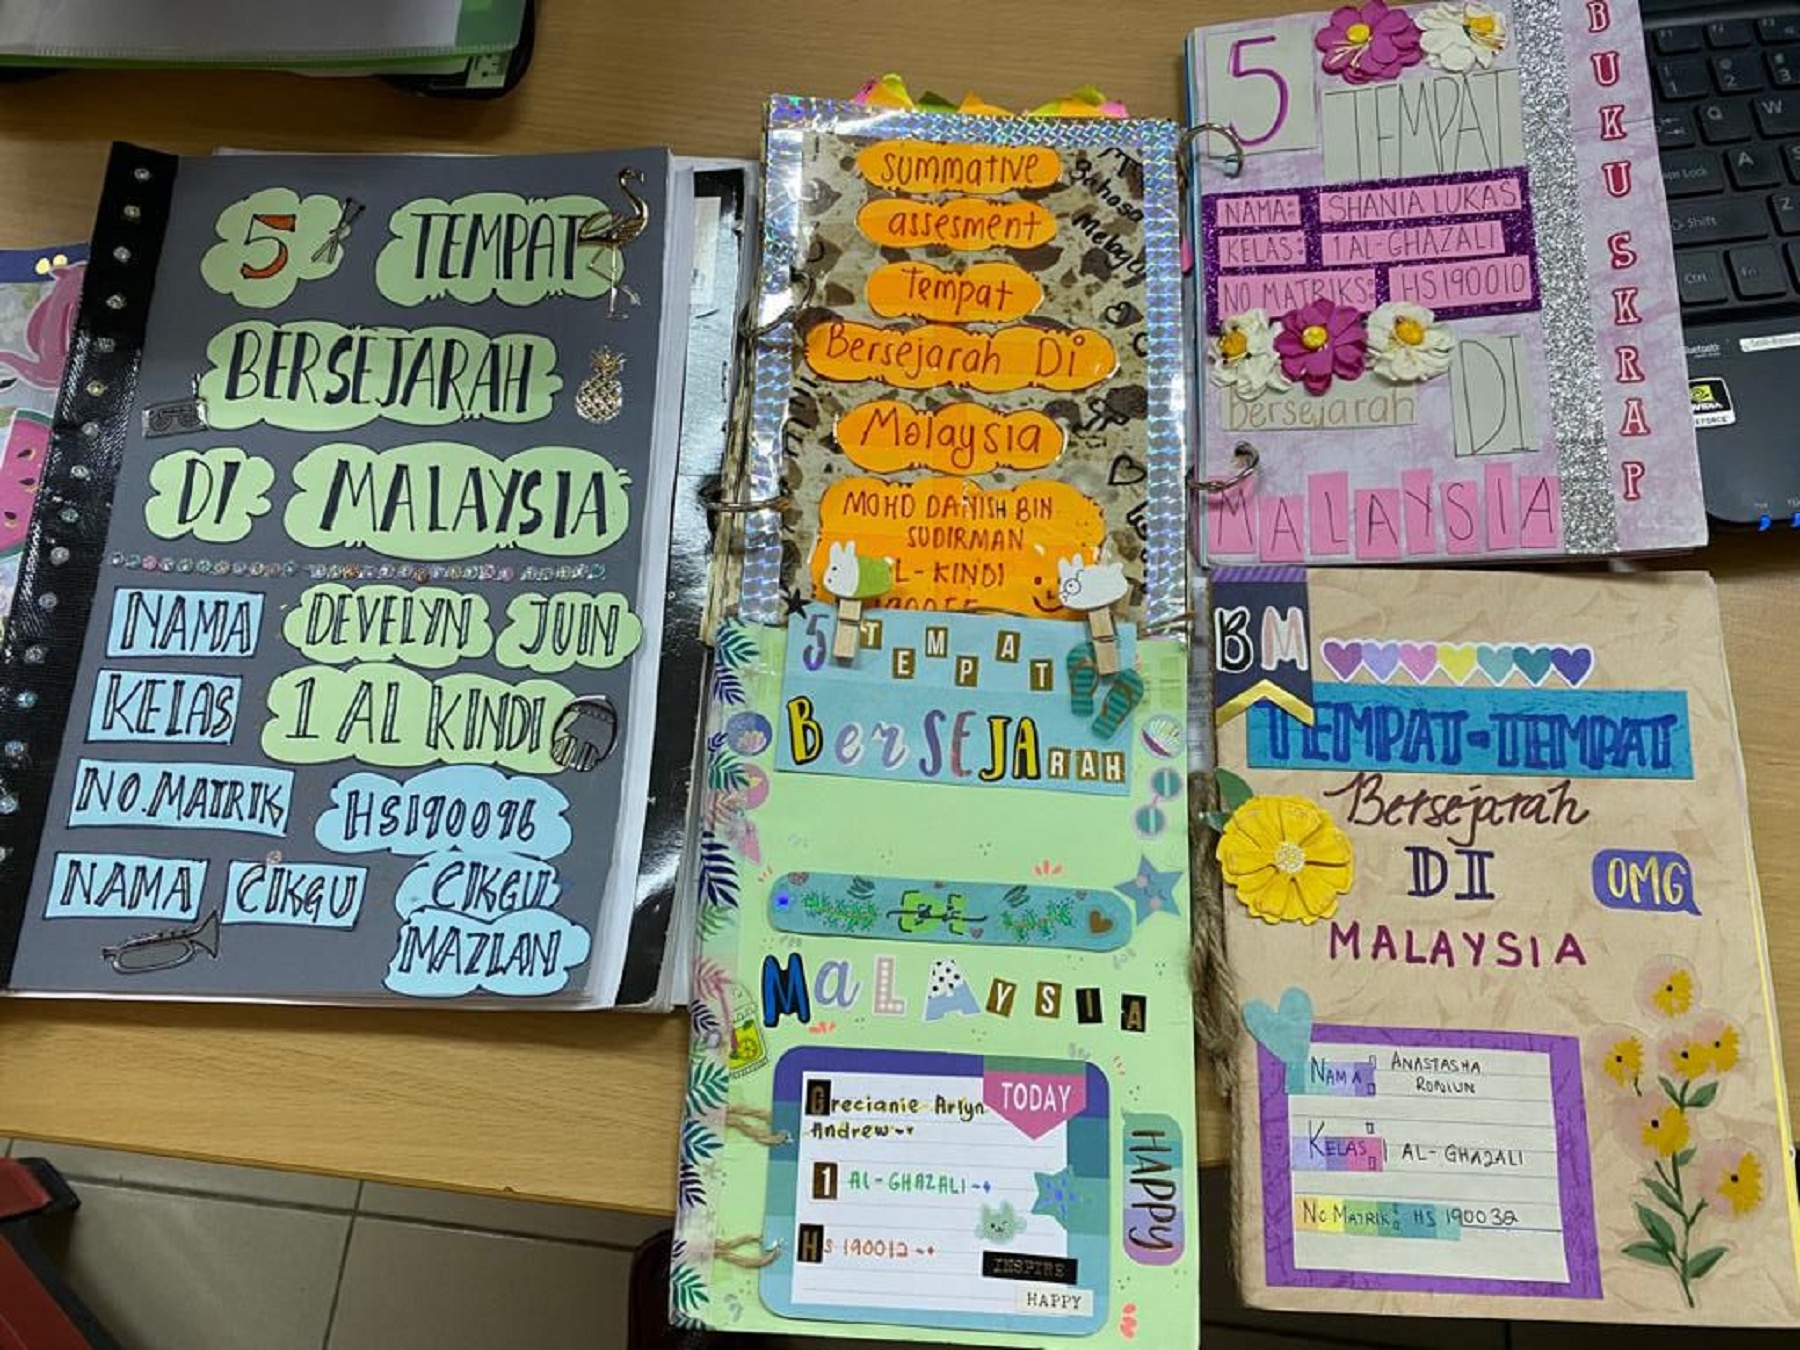 5 TEMPAT
BERSEJARAH
DI MALAYSIA
NAMA DEVELYN JUIN
KELAS 1 AL KINDI
NO.MATRIK HS190096
NAMA CIKGU CIKGU
MAZLAN
summative
assesment
Tempat
Bersejarah Di
Malaysia
MOHD DANISH BIN
SUDIRMAN
L-KINDI
Bahasa
Melayu
5 TEMPAT
BerSEJARAH
MaLAYSIA
TODAY
Grecianie Arlyn
Andrew
1 AL-GHAZALI
HS 190012
INSPIRE
HAPPY
HAPPY
5
TEMPAT
NAMA: SHANIA LUKAS
KELAS: 1 AL-GHAZALI
NO MATRIKS: HS190010
Bersejarah DI
MALAYSIA
BUKU SKRAP
BM
TEMPAT-TEMPAT
Bersejarah
DI
MALAYSIA
OMG
NAMA: ANASTASHA
RONIUN
KELAS: 1 AL-GHAZALI
No MATRIK: HS 190032
Q
W
A
Z
Shift
Ctrl
Fn
Bluetooth